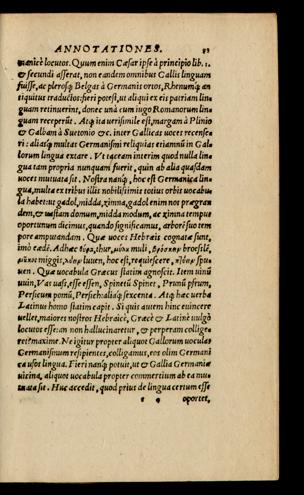 ANNOTATIONES. 33
manicè locutos. Quum enim Cæsar ipse à principio lib. 1.
& secundi asserat, non eandem omnibus Gallis linguam
fuisse, ac plerosq; Belgas à Germanis ortos, Rhenumq; an
tiquitus traductos: fieri potest, ut aliqui ex eis patriam lin-
guam retinuerint, donec unà cum iugo Romanorum lin-
guam receperūt. Atq; ita uerisimile est, margam à Plinio
& Galbam à Suetonio &c. inter Gallicas uoces recense-
ri: aliasq; multas Germanismi reliquias etiamnū in Gal-
lorum lingua extare. Vt taceam interim quod nulla lin-
gua tam propria nunquam fuerit, quin ab alia quasdam
uoces mutuata sit. Nostra nanq;, hoc est Germanica lin
gua, multa ex tribus illis nobilissimis totius orbis uocabu
la habet: ut gadol, midda, zimna, gadol enim nos prægran
dem, & uastam domum, midda modum, ac zimna tempus
oportunum dicimus, quando significamus, arbores suo tem
pore ampuandam. Quæ uoces Hebræis cognatæ sunt,
imò eædē. Adhæc θύρα, thur, muli, broesilē,
miggis, luuen, hoc est, requiescere, spu-
uen. Quæ uocabula Græcus statim agnoscit. Item uinū
uuin, Vas uasi, esse essen, Spinetū Spinet, Prunū pfrum,
Persicum pomū, Persich: aliaq; sexcenta. Atq; hæc uerba
Latinus homo statim capit. Si quis autem hinc euincere
uellet, maiores nostros Hebraicè, Græcè & Latinè uulgò
locutos esse: an non hallucinaretur, & perperam collige-
ret? maximè. Ne igitur propter aliquot Gallorum uoculas
Germanismum resipientes, colligamus, eos olim Germani
ca usos lingua. Fieri nanq; potuit, ut & Gallia Germaniæ
uicina, aliquot uocabula propter commertium ab ea mu-
tuata sit. Huc accedit, quod prius de lingua certum esse
oportet,